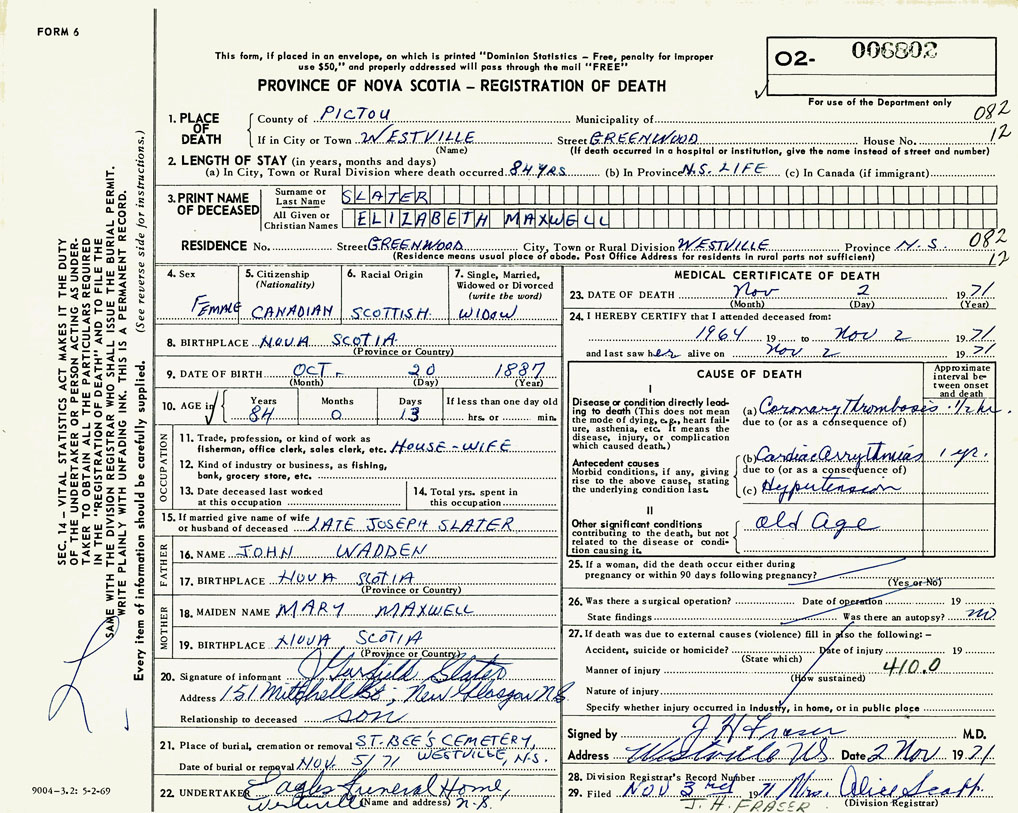 FORM 6
This form, if placed in an envelope, on which is printed "Dominion Statistics – Free, penalty for improper
use $50," and properly addressed will pass through the mail "FREE"
PROVINCE OF NOVA SCOTIA – REGISTRATION OF DEATH
02- 006802
For use of the Department only
1. PLACE OF DEATH
County of PICTOU Municipality of 082
If in City or Town WESTVILLE Street GREENWOOD House No. 12
(Name) (If death occurred in a hospital or institution, give the name instead of street and number)
2. LENGTH OF STAY (in years, months and days)
(a) In City, Town or Rural Division where death occurred 84 YRS (b) In Province N.S. LIFE (c) In Canada (if immigrant)
3. PRINT NAME OF DECEASED
Surname or Last Name SLATER
All Given or Christian Names ELIZABETH MAXWELL
RESIDENCE No. Street GREENWOOD City, Town or Rural Division WESTVILLE Province N.S. 082
(Residence means usual place of abode. Post Office Address for residents in rural parts not sufficient) 12
4. Sex FEMALE
5. Citizenship (Nationality) CANADIAN
6. Racial Origin SCOTTISH
7. Single, Married, Widowed or Divorced (write the word) WIDOW
8. BIRTHPLACE NOVA SCOTIA
(Province or Country)
9. DATE OF BIRTH OCT- 20 1887
(Month) (Day) (Year)
10. AGE in Years 84 Months 0 Days 13 If less than one day old hrs. or min.
OCCUPATION
11. Trade, profession, or kind of work as fisherman, office clerk, sales clerk, etc. HOUSE-WIFE
12. Kind of industry or business, as fishing, bank, grocery store, etc.
13. Date deceased last worked at this occupation
14. Total yrs. spent in this occupation
15. If married give name of wife or husband of deceased LATE JOSEPH SLATER
FATHER
16. NAME JOHN WADDEN
17. BIRTHPLACE NOVA SCOTIA
(Province or Country)
MOTHER
18. MAIDEN NAME MARY MAXWELL
19. BIRTHPLACE NOVA SCOTIA
(Province or Country)
20. Signature of informant J Garfield Slater
Address 151 Mitchell St; New Glasgow NS
Relationship to deceased son
21. Place of burial, cremation or removal ST. BEE'S CEMETERY,
WESTVILLE, N.S.
Date of burial or removal NOV. 5/71
22. UNDERTAKER Eagles Funeral Home,
Westville (Name and address) N.S.
MEDICAL CERTIFICATE OF DEATH
23. DATE OF DEATH Nov 2 1971
(Month) (Day) (Year)
24. I HEREBY CERTIFY that I attended deceased from:
1964 19 to Nov 2 1971
and last saw her alive on Nov 2 1971
CAUSE OF DEATH
Approximate interval between onset and death
I
Disease or condition directly leading to death (This does not mean the mode of dying, e.g., heart failure, asthenia, etc. It means the disease, injury, or complication which caused death.)
(a) Coronary Thrombosis 1/2 hr.
due to (or as a consequence of)
Antecedent causes
Morbid conditions, if any, giving rise to the above cause, stating the underlying condition last.
(b) Cardiac Arrythmias 1 yr.
due to (or as a consequence of)
(c) Hypertension
II
Other significant conditions contributing to the death, but not related to the disease or condition causing it.
old Age
25. If a woman, did the death occur either during pregnancy or within 90 days following pregnancy?
(Yes or No)
26. Was there a surgical operation? Date of operation 19
State findings Was there an autopsy? no
27. If death was due to external causes (violence) fill in also the following: –
Accident, suicide or homicide? Date of injury 19
(State which)
Manner of injury 410.0
(How sustained)
Nature of injury
Specify whether injury occurred in industry, in home, or in public place
Signed by J H Fraser M.D.
Address Westville NS Date 2 Nov 1971
28. Division Registrar's Record Number
29. Filed NOV 3rd 1971 Mrs. Alice Scapp.
J. H. FRASER (Division Registrar)
SEC. 14 – VITAL STATISTICS ACT MAKES IT THE DUTY
OF THE UNDERTAKER OR PERSON ACTING AS UNDER-
TAKER TO OBTAIN ALL THE PARTICULARS REQUIRED
IN THE "REGISTRATION OF DEATH" AND TO FILE THE
SAME WITH THE DIVISION REGISTRAR WHO SHALL ISSUE THE BURIAL PERMIT.
WRITE PLAINLY WITH UNFADING INK. THIS IS A PERMANENT RECORD.
Every item of information should be carefully supplied. (See reverse side for instructions.)
9004-3.2: 5-2-69